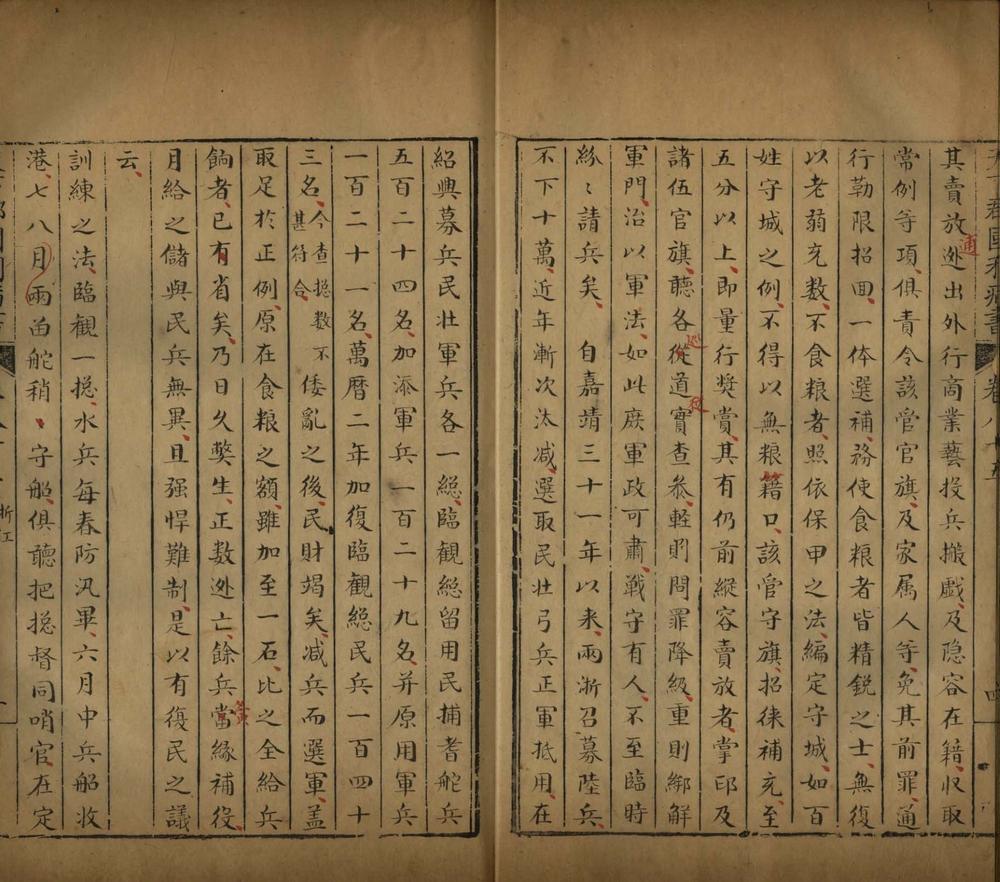 天下郡國利病書 卷八十五
其賣放迯出外行商業藝投兵搬戲及隐容在籍收取
通
常例等項俱責令該官官旗及家属人等免其前罪通
行勒限招囬一体選補務使食粮者皆精銳之士無復
以老弱充数不食粮者照依保甲之法編定守城如百
姓守城之例不得以無粮籍口該管守旗招徕補充至
五分以上即量行奖賞其有仍前縱容賣放者掌印及
諸伍官旗聽各從道實查叅輕則問罪降級重則綁解
軍門治以軍法如此庻軍政可肅戰守有人不至臨時
紛〻請兵矣 自嘉靖三十一年以来兩浙召募陸兵
不下十萬近年漸次汰减選取民壮弓兵正軍抵用在
紹興募兵民壮軍兵各一緫臨觀緫留用民捕耆舵兵
五百二十四名加添軍兵一百二十九名并原用軍兵
一百二十一名萬曆二年加復臨觀緫民兵一百四十
三名今查捴数不甚符合倭亂之後民財竭矣减兵而選軍盖
取足於正例原在食粮之額雖加至一石比之全給兵
餉者已有省矣乃日久獘生正数迯亡餘兵當緣補役
月給之儲與民兵無異且强悍難制是以有復民之議
云
訓練之法臨觀一捴水兵每春防汛畢六月中兵船收
港七八月雨畄舵稍〻守船俱聽把捴督同哨官在定
浙江